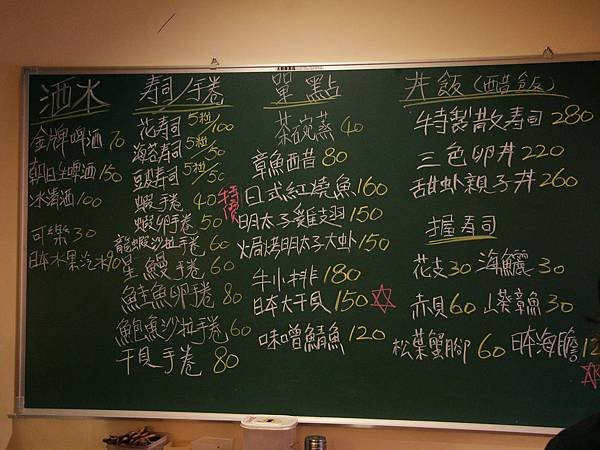 酒水
金牌啤酒 70
朝日生啤酒 150
冰清酒 100
可樂 30
日本水果汽水 90
壽司/手卷
花壽司 5粒/100
海苔壽司 5粒/50
豆皮壽司 5粒/50
蝦手卷 40 特價
蝦卵手卷 50
龍蝦沙拉手卷 60
星鰻手卷 60
鮭魚卵手卷 80
鮑魚沙拉手卷 60
干貝手卷 80
單點
茶碗蒸 40
章魚醋 80
日式紅燒魚 160
明太子雞翅 150
火局烤明太子大虾 150
牛小排 180
日本大干貝 150
味噌鯖魚 120
丼飯(醋飯)
特製散寿司 280
三色卵丼 220
甜虾親子丼 260
握寿司
花支 30 海鱺 30
赤貝 60 山葵章魚 30
松葉蟹腳 60 日本海膽